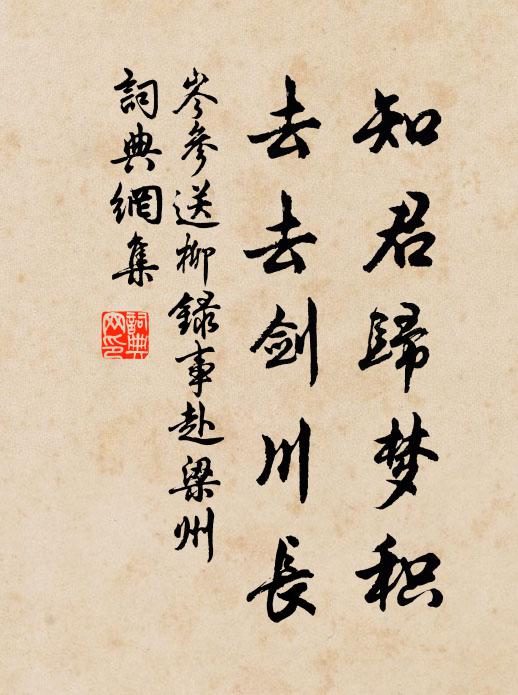 知君歸梦积
去去剑川長
岑參送柳録事赴梁州
詞典網集
詞典網印